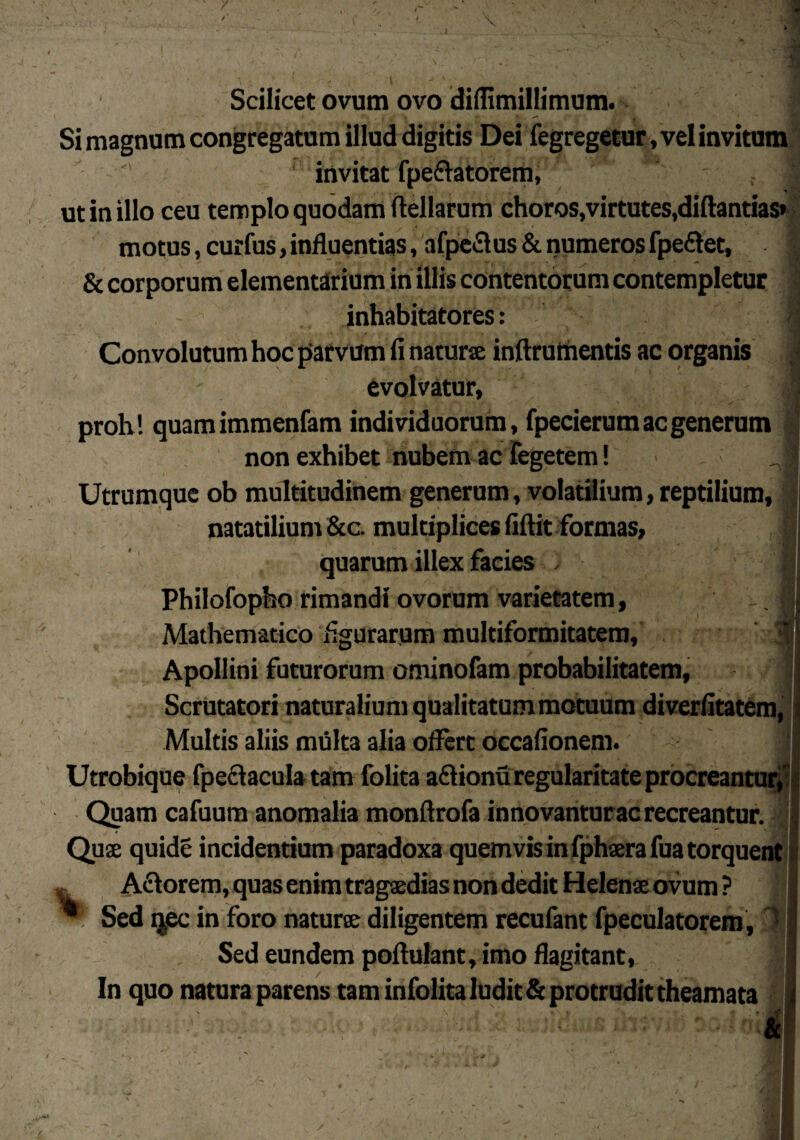 Scilicet ovum ovo diſſimillimum.
Si magnum congregatum illud digitis Dei ſegregetur, vel invitum
invitat ſpectatorem,
ut in illo ceu templo quodam ſtellarum choros, virtutes, diſtantias,
motus, curſus, influentias, aſpectus & numeros ſpectet,
& corporum elementarium in illis contentorum contempletur
inhabitatores:
Convolutum hoc parvum ſi naturæ inſtrumentis ac organis
evolvatur,
proh! quam immenſam individuorum, ſpecierum ac generum
non exhibet nubem ac ſegetem!
Utrumque ob multitudinem generum, volatilium, reptilium,
natatilium &c. multiplices ſiſtit formas,
quarum illex facies
Philoſopho rimandi ovorum varietatem,
Mathematico figurarum multiformitatem,
Apollini futurorum ominoſam probabilitatem,
Scrutatori naturalium qualitatum motuum diverſitatem,
Multis aliis multa alia offert occaſionem.
Utrobique ſpectacula tam ſolita actionū regularitate procreantur,
Quam caſuum anomalia monſtroſa innovantur ac recreantur.
Quæ quidē incidentium paradoxa quemvis in ſphæra ſua torquent
Actorem, quas enim tragædias non dedit Helenæ ovum?
Sed nec in foro naturæ diligentem recuſant ſpeculatorem,
Sed eundem poſtulant, imo flagitant,
In quo natura parens tam inſolita ludit & protrudit theamata
&